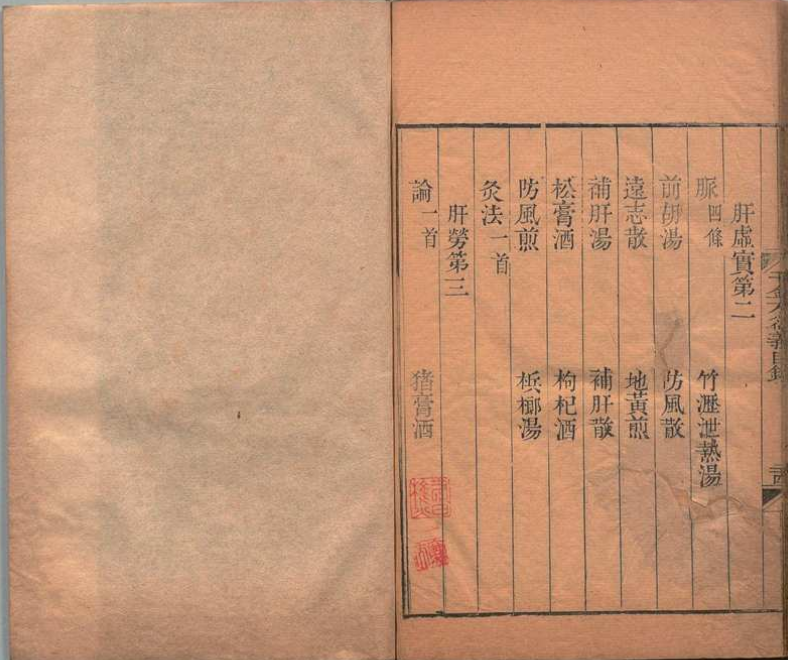 肝虛實第二
脈四條 竹瀝泄熱湯
前胡湯 防風散
遠志散 地黃煎
補肝湯 補肝散
松膏酒 枸杞酒
防風煎 檳榔湯
灸法一首
肝勞第三
論一首 猪膏酒